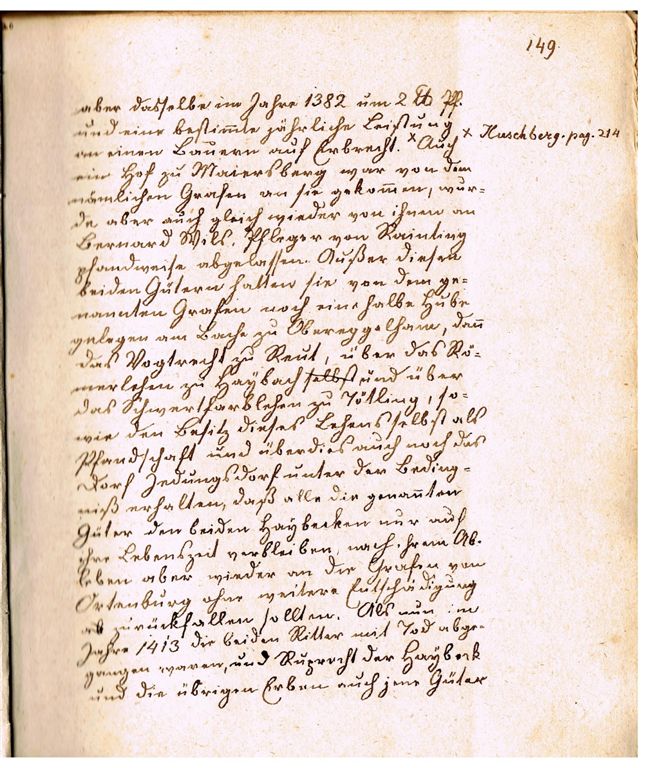 149.
aber dasselbe im Jahre 1382 um 2 ℔ Pf.
und eine bestimmte jährliche Leistung
an einen Bauern auf Erbrecht. × Auch
× Huschberg. pag. 214
ein Hof zu Maiersberg war von dem
nämlichen Grafen an sie gekommen, wur-
de aber auch gleich wieder von ihnen an
Bernard Wils, Pfleger von Rainting
pfandweise abgelassen. Außer diesen
beiden Gütern hatten sie von dem ge-
nannten Grafen noch eine halbe Hube
gelegen am Bache zu Obereggelham, dann
das Vogtrecht zu Reut, über das Rö-
merlehen zu Haybach selbst und über
das Schwertfarblehen zu Tötling, so-
wie den Besitz dieses Lehens selbst als
Pfandschaft und überdies auch noch das
Dorf Jedungsdorf unter der Beding-
niß erhalten, daß alle die genannten
Güter den beiden Haybecken nur auf
ihre Lebenszeit verbleiben, nach ihrem Ab-
leben aber wieder an die Grafen von
Ortenburg ohne weitere Entschädigung
ab zurückfallen sollten. Als nun im
Jahre 1413 die beiden Ritter mit Tod abge-
gangen waren, und Ruprecht der Haybeck
und die übrigen Erben auch jene Güter